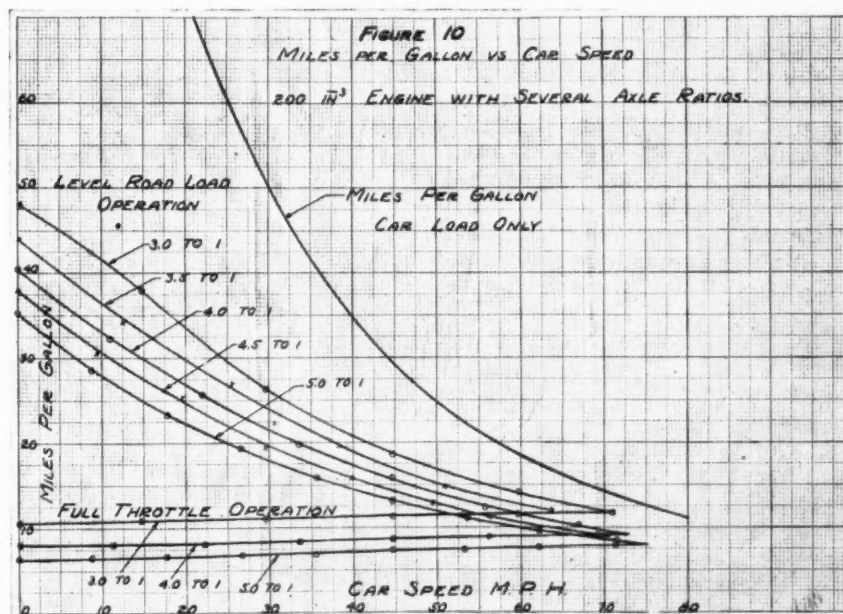 FIGURE 10
MILES PER GALLON VS CAR SPEED
200 IN³ ENGINE WITH SEVERAL AXLE RATIOS.
60
50 LEVEL ROAD LOAD
OPERATION
MILES PER GALLON
CAR LOAD ONLY
3.0 TO 1
3.5 TO 1
40
4.0 TO 1
4.5 TO 1
30
5.0 TO 1
20
MILES PER GALLON
FULL THROTTLE OPERATION
10
3.0 TO 1
4.0 TO 1
5.0 TO 1
CAR SPEED M.P.H.
0 10 20 30 40 50 60 70 80